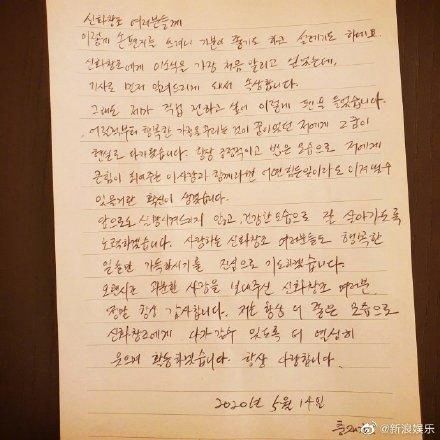 신화창조 여러분들께
이렇게 손편지를 쓰려니 기분이 좋기도 하고 설레기도 하네요.
신화창조에게 이 소식을 가장 처음 알리고 싶었는데,
기사로 먼저 알려드리게 돼서 속상합니다.
그래도 제가 직접 전하고 싶어 이렇게 펜을 들었습니다.
어릴적부터 행복한 가정을 꾸리는 것이 꿈이었던 저에게 그 꿈이
현실로 다가왔습니다. 항상 긍정적이고 밝은 모습으로 저에게
큰힘이 되어주는 이 사람과 함께라면 어떤 힘든일이라도 이겨낼수
있을거란 확신이 생겼습니다.
앞으로도 실망시켜드리지 않고, 건강한 모습으로 잘 살아가도록
노력하겠습니다. 사랑하는 신화창조 여러분들도 행복한
일들만 가득하시기를 진심으로 기도하겠습니다.
오랜시간 과분한 사랑을 보내주신 신화창조 여러분.
정말 항상 감사합니다. 저는 항상 더 좋은 모습으로
신화창조에게 다가갈수 있도록 더 열심히
웃으며 활동하겠습니다. 항상 사랑합니다.
2020년 5월 14일
@新浪娱乐